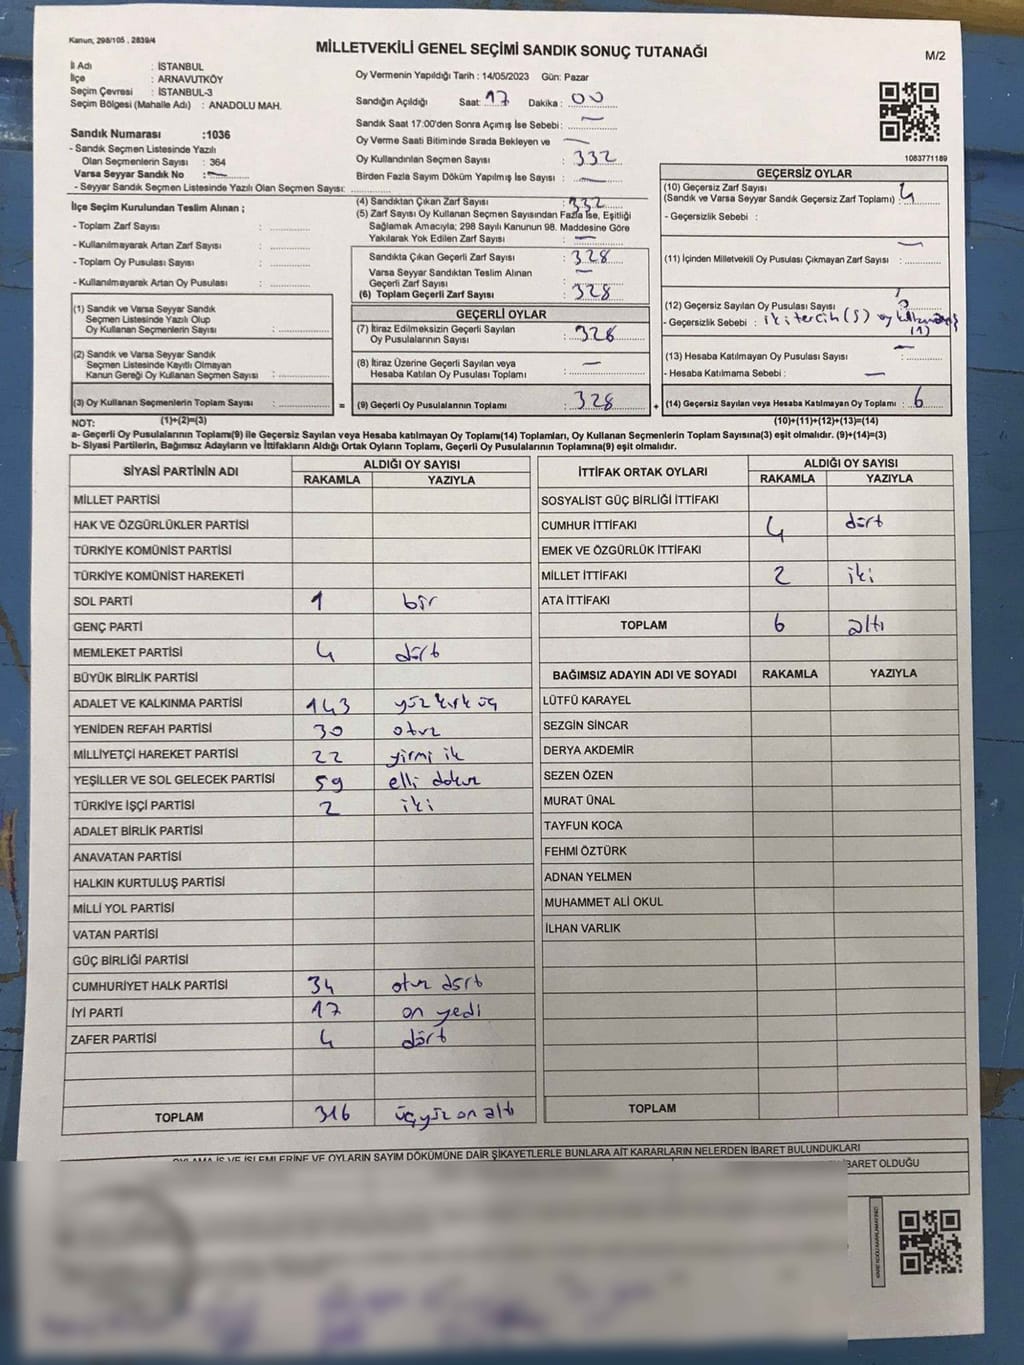 Kanun, 298/105 , 2839/4
MİLLETVEKİLİ GENEL SEÇİMİ SANDIK SONUÇ TUTANAĞI
M/2
İl Adı : İSTANBUL
İlçe : ARNAVUTKÖY
Seçim Çevresi : İSTANBUL-3
Seçim Bölgesi (Mahalle Adı) : ANADOLU MAH.
Sandık Numarası :1036
- Sandık Seçmen Listesinde Yazılı
Olan Seçmenlerin Sayısı : 364
Varsa Seyyar Sandık No : —
- Seyyar Sandık Seçmen Listesinde Yazılı Olan Seçmen Sayısı:
Oy Vermenin Yapıldığı Tarih : 14/05/2023 Gün: Pazar
Sandığın Açıldığı Saat: 17 Dakika : 00
Sandık Saat 17:00'den Sonra Açımış İse Sebebi: —
Oy Verme Saati Bitiminde Sırada Bekleyen ve —
Oy Kullandırılan Seçmen Sayısı : 332
Birden Fazla Sayım Döküm Yapılmış İse Sayısı : —
1083771189
İlçe Seçim Kurulundan Teslim Alınan ;
- Toplam Zarf Sayısı :
- Kullanılmayarak Artan Zarf Sayısı :
- Toplam Oy Pusulası Sayısı :
- Kullanılmayarak Artan Oy Pusulası :
(1) Sandık ve Varsa Seyyar Sandık
Seçmen Listesinde Yazılı Olup
Oy Kullanan Seçmenlerin Sayısı :
(2) Sandık ve Varsa Seyyar Sandık
Seçmen Listesinde Kayıtlı Olmayan
Kanun Gereği Oy Kullanan Seçmen Sayısı :
(3) Oy Kullanan Seçmenlerin Toplam Sayısı :
(1)+(2)=(3)
(4) Sandıktan Çıkan Zarf Sayısı : 332
(5) Zarf Sayısı Oy Kullanan Seçmen Sayısından Fazla İse, Eşitliği
Sağlamak Amacıyla; 298 Sayılı Kanunun 98. Maddesine Göre
Yakılarak Yok Edilen Zarf Sayısı : —
Sandıkta Çıkan Geçerli Zarf Sayısı : 328
Varsa Seyyar Sandıktan Teslim Alınan
Geçerli Zarf Sayısı : —
(6) Toplam Geçerli Zarf Sayısı : 328
GEÇERLİ OYLAR
(7) İtiraz Edilmeksizin Geçerli Sayılan
Oy Pusulalarının Sayısı : 328
(8) İtiraz Üzerine Geçerli Sayılan veya
Hesaba Katılan Oy Pusulası Toplamı : —
= (9) Geçerli Oy Pusulalarının Toplamı : 328 +
GEÇERSİZ OYLAR
(10) Geçersiz Zarf Sayısı
(Sandık ve Varsa Seyyar Sandık Geçersiz Zarf Toplamı) : 4
- Geçersizlik Sebebi :
(11) İçinden Milletvekili Oy Pusulası Çıkmayan Zarf Sayısı : —
(12) Geçersiz Sayılan Oy Pusulası Sayısı
- Geçersizlik Sebebi : iki tercih (5) oy
(1)
(13) Hesaba Katılmayan Oy Pusulası Sayısı : —
- Hesaba Katılmama Sebebi : —
(14) Geçersiz Sayılan veya Hesaba Katılmayan Oy Toplamı : 6
(10)+(11)+(12)+(13)=(14)
NOT:
a- Geçerli Oy Pusulalarının Toplamı(9) ile Geçersiz Sayılan veya Hesaba katılmayan Oy Toplam(14) Toplamları, Oy Kullanan Seçmenlerin Toplam Sayısına(3) eşit olmalıdır. (9)+(14)=(3)
b- Siyasi Partilerin, Bağımsız Adayların ve İttifakların Aldığı Ortak Oyların Toplamı, Geçerli Oy Pusulalarının Toplamına(9) eşit olmalıdır.
SİYASİ PARTİNİN ADI ALDIĞI OY SAYISI
RAKAMLA YAZIYLA
MİLLET PARTİSİ
HAK VE ÖZGÜRLÜKLER PARTİSİ
TÜRKİYE KOMÜNİST PARTİSİ
TÜRKİYE KOMÜNİST HAREKETİ
SOL PARTİ 1 bir
GENÇ PARTİ
MEMLEKET PARTİSİ 4 dört
BÜYÜK BİRLİK PARTİSİ
ADALET VE KALKINMA PARTİSİ 143 yüz kırk üç
YENİDEN REFAH PARTİSİ 30 otuz
MİLLİYETÇİ HAREKET PARTİSİ 22 yirmi ik
YEŞİLLER VE SOL GELECEK PARTİSİ 59 elli dokuz
TÜRKİYE İŞÇİ PARTİSİ 2 iki
ADALET BİRLİK PARTİSİ
ANAVATAN PARTİSİ
HALKIN KURTULUŞ PARTİSİ
MİLLİ YOL PARTİSİ
VATAN PARTİSİ
GÜÇ BİRLİĞİ PARTİSİ
CUMHURİYET HALK PARTİSİ 34 otuz dört
İYİ PARTİ 17 on yedi
ZAFER PARTİSİ 4 dört
TOPLAM 316 üçyüz on altı
İTTİFAK ORTAK OYLARI ALDIĞI OY SAYISI
RAKAMLA YAZIYLA
SOSYALİST GÜÇ BİRLİĞİ İTTİFAKI
CUMHUR İTTİFAKI 4 dört
EMEK VE ÖZGÜRLÜK İTTİFAKI
MİLLET İTTİFAKI 2 iki
ATA İTTİFAKI
TOPLAM 6 altı
BAĞIMSIZ ADAYIN ADI VE SOYADI RAKAMLA YAZIYLA
LÜTFÜ KARAYEL
SEZGİN SİNCAR
DERYA AKDEMİR
SEZEN ÖZEN
MURAT ÜNAL
TAYFUN KOCA
FEHMİ ÖZTÜRK
ADNAN YELMEN
MUHAMMET ALİ OKUL
İLHAN VARLIK
TOPLAM
OYLAMA İŞ VE İŞLEMLERİNE VE OYLARIN SAYIM DÖKÜMÜNE DAİR ŞİKAYETLERLE BUNLARA AİT KARARLARIN NELERDEN İBARET BULUNDUKLARI
İBARET OLDUĞU